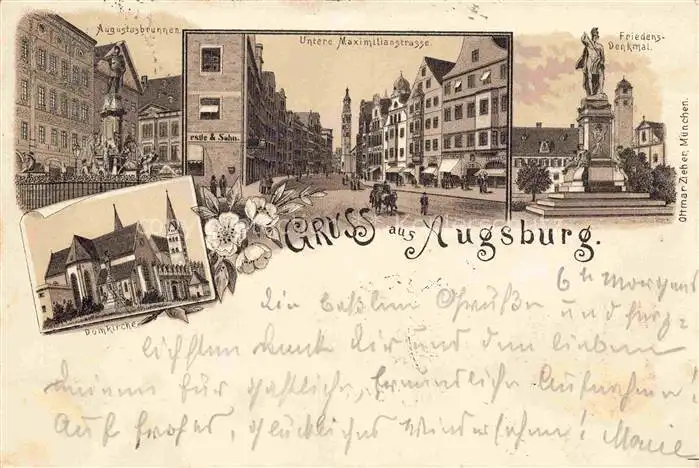 Augustusbrunnen.
Untere Maximilianstrasse.
Friedens-
Denkmal.
& Sohn.
Ottmar Zieher, München.
Domkirche.
GRUSS aus Augsburg.
6 h Morgens
Die besten Grüße und herz-
lichsten Dank Dir und den lieben
Deinen für gastliche, freundliche Aufnahme!
Auf frohes, glückliches Wiedersehen! Marie